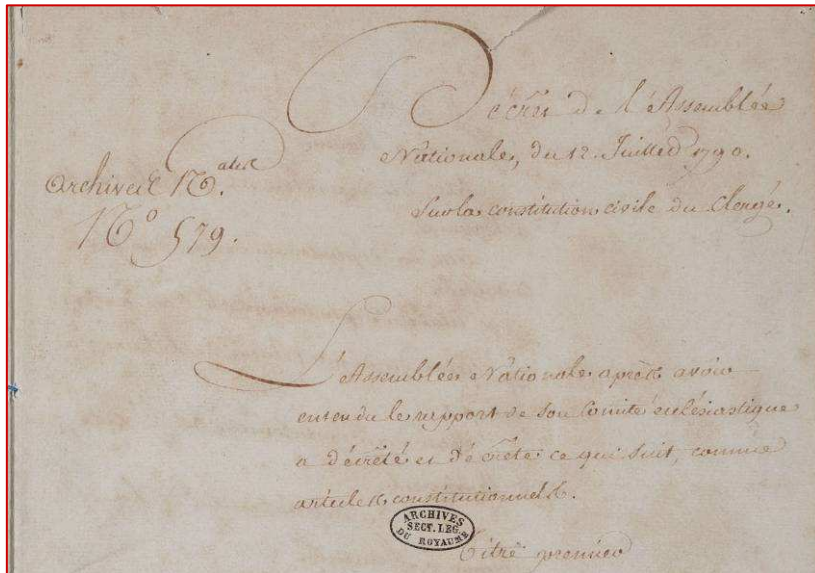 Décret de l'Assemblée
Nationale, du 12. Juillet 1790.
Sur la constitution civile du Clergé.
Archives N.ales
N° 579.
L'Assemblée Nationale après avoir
entendu le rapport de son Comité ecclésiastique
a décrété et décrète ce qui suit, comme
articles constitutionnels.
ARCHIVES
SECT. LEG.
DU ROYAUME
Titre premier